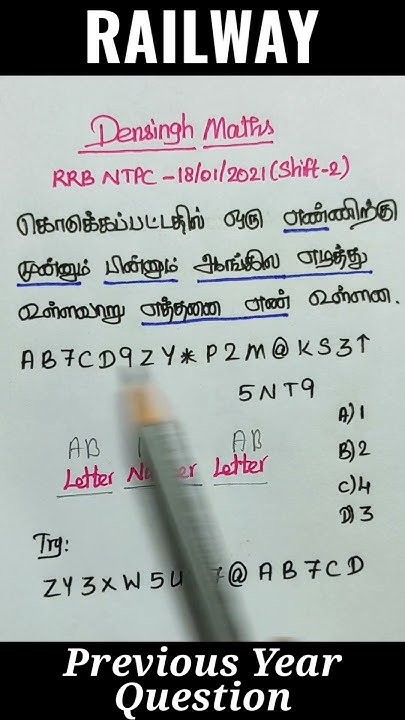 RAILWAY
Densingh Maths
RRB NTPC - 18/01/2021 (Shift-2)
கொடுக்கப்பட்டதில் ஒரு எண்ணிற்கு
முன்னும் பின்னும் ஆங்கில எழுத்து
உள்ளவாறு எத்தனை எண் உள்ளன.
A B 7 C D 9 Z Y * P 2 M @ K S 3 ↑
5 N T 9
A) 1
AB AB
B) 2
Letter Letter
C) 4
D) 3
Try:
Z Y 3 X W 5 U @ A B 7 C D
Previous Year
Question